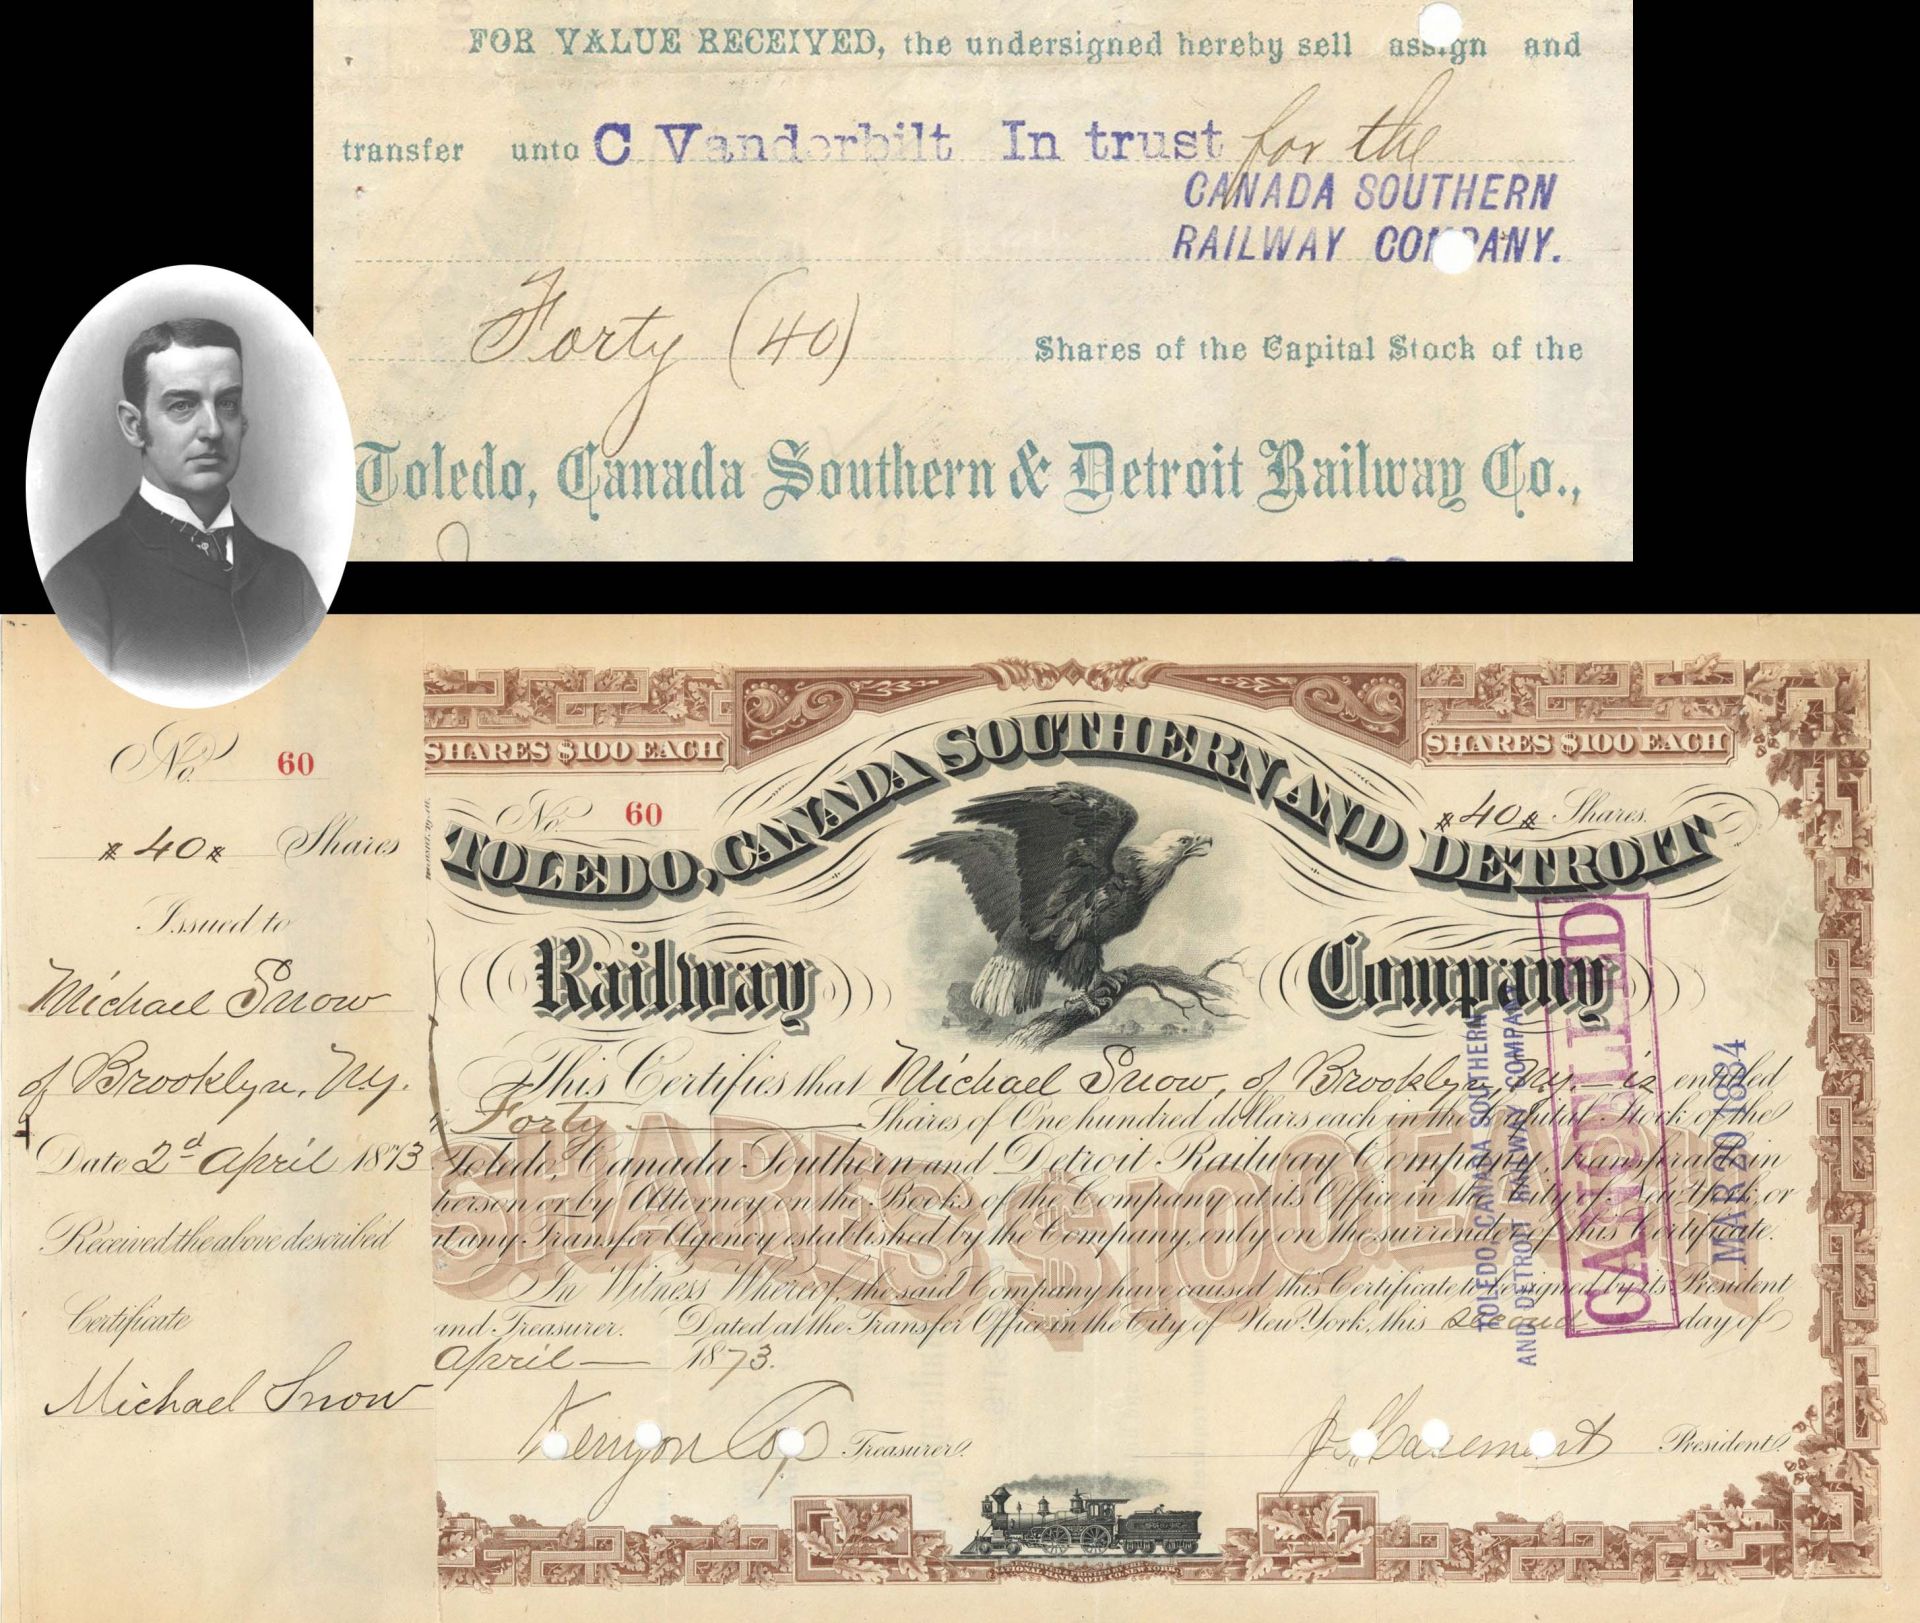 FOR VALUE RECEIVED, the undersigned hereby sell assign and
transfer unto C Vanderbilt In trust for the
CANADA SOUTHERN
RAILWAY COMPANY.
Forty (40) Shares of the Capital Stock of the
Toledo, Canada Southern & Detroit Railway Co.,
No. 60
40 Shares
Issued to
Michael Snow
of Brooklyn, N.Y.
Date 2d April 1873
Received the above described
Certificate
Michael Snow
SHARES $100 EACH
SHARES $100 EACH
No. 60
40 Shares.
TOLEDO, CANADA SOUTHERN AND DETROIT
Railway Company
This Certifies that Michael Snow, of Brooklyn, N.Y. is entitled
Forty Shares of One hundred dollars each in the Capital Stock of the
Toledo, Canada Southern and Detroit Railway Company, transferable in
person or by Attorney on the Books of the Company at its Office in the City of New York, or
at any Transfer Agency established by the Company, only on the surrender of this Certificate.
In Witness Whereof, the said Company have caused this Certificate to be signed by its President
and Treasurer. Dated at the Transfer Office in the City of New York, this second day of
April 1873.
SHARES $100 EACH
Kenyon Cox Treasurer.
J. S. Casement President.
TOLEDO CANADA SOUTHERN
AND DETROIT RAILWAY COMPANY
CANCELLED
MAR 20 1884